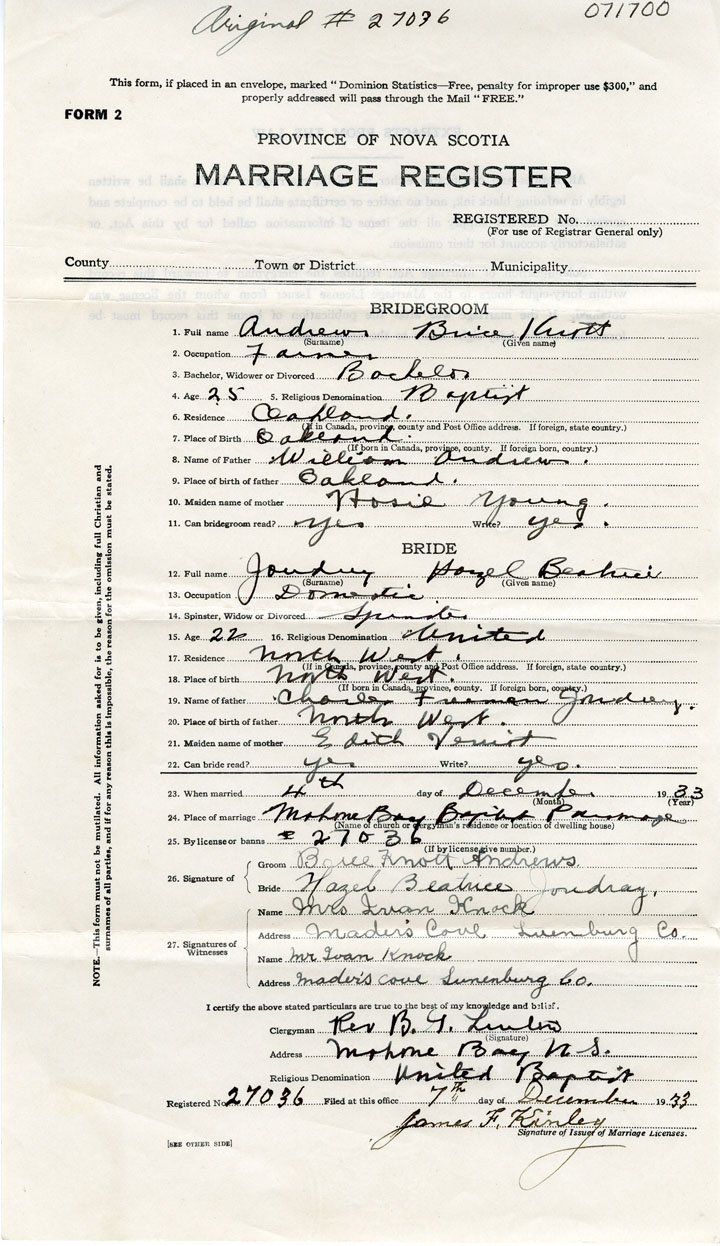 Original # 27036
071700
This form, if placed in an envelope, marked "Dominion Statistics—Free, penalty for improper use $300," and
properly addressed will pass through the Mail "FREE."
FORM 2
PROVINCE OF NOVA SCOTIA
MARRIAGE REGISTER
REGISTERED No.
(For use of Registrar General only)
County Town or District Municipality
BRIDEGROOM
1. Full name Andrews Brice Knott
(Surname) (Given name)
2. Occupation Farmer
3. Bachelor, Widower or Divorced Bachelor
4. Age 25 5. Religious Denomination Baptist
6. Residence Oakland.
(If in Canada, province, county and Post Office address. If foreign, state country.)
7. Place of Birth Oakland.
(If born in Canada, province, county. If foreign born, country.)
8. Name of Father William Andrews.
9. Place of birth of father Oakland.
10. Maiden name of mother Young.
11. Can bridegroom read? yes Write? yes.
BRIDE
12. Full name Joudrey Hazel Beatrice
(Surname) (Given name)
13. Occupation Domestic
14. Spinster, Widow or Divorced Spinster
15. Age 22 16. Religious Denomination United
17. Residence North West.
(If in Canada, province, county and Post Office address. If foreign, state country.)
18. Place of birth North West.
(If born in Canada, province, county. If foreign born, country.)
19. Name of father Charles Freeman Joudrey.
20. Place of birth of father North West.
21. Maiden name of mother Edith Veniot
22. Can bride read? yes Write? yes.
23. When married 4th day of December 1933
(Month) (Year)
24. Place of marriage Mahone Bay Baptist Parsonage
(Name of church or clergyman's residence or location of dwelling house)
25. By license or banns # 27036
(If by license give number.)
26. Signature of
Groom Brice Knott Andrews
Bride Hazel Beatrice Joudray.
27. Signatures of
Witnesses
Name Mrs Ivan Knock
Address Mader's Cove Luenburg Co.
Name Mr Ivan Knock
Address Mader's cove Lunenburg Co.
I certify the above stated particulars are true to the best of my knowledge and belief.
Clergyman Rev B. G.
(Signature)
Address Mahone Bay N.S.
Religious Denomination United Baptist
Registered No. 27036 Filed at this office 7th day of December 1933
James F. Kinley
Signature of Issuer of Marriage Licenses.
[SEE OTHER SIDE]
NOTE.—This form must not be mutilated. All information asked for is to be given, including full Christian and
surnames of all parties, and if for any reason this is impossible, the reason for the omission must be stated.